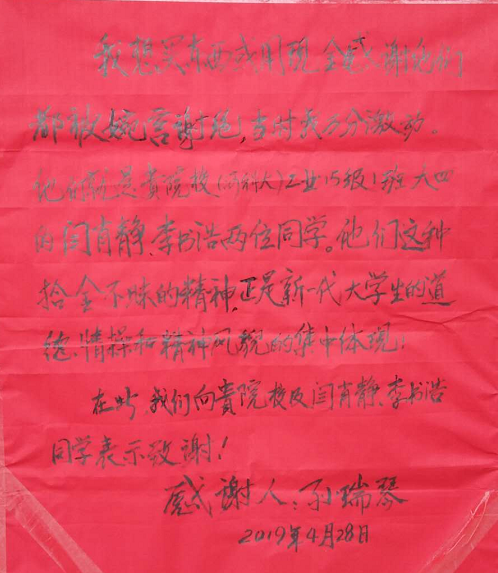 我想买东西或用现金感谢他们
都被婉言谢绝!当时我万分激动。
他们就是貴院校(河科大)工业15级1班大四
的闫肖静、李书浩两位同学。他们这种
拾金不昧的精神,正是新一代大学生的道
德、情操和精神风貌的集中体现!
在此 我们向貴院校及闫肖静、李书浩
同学表示致谢!
感谢人:孙瑞琴
2019年4月28日